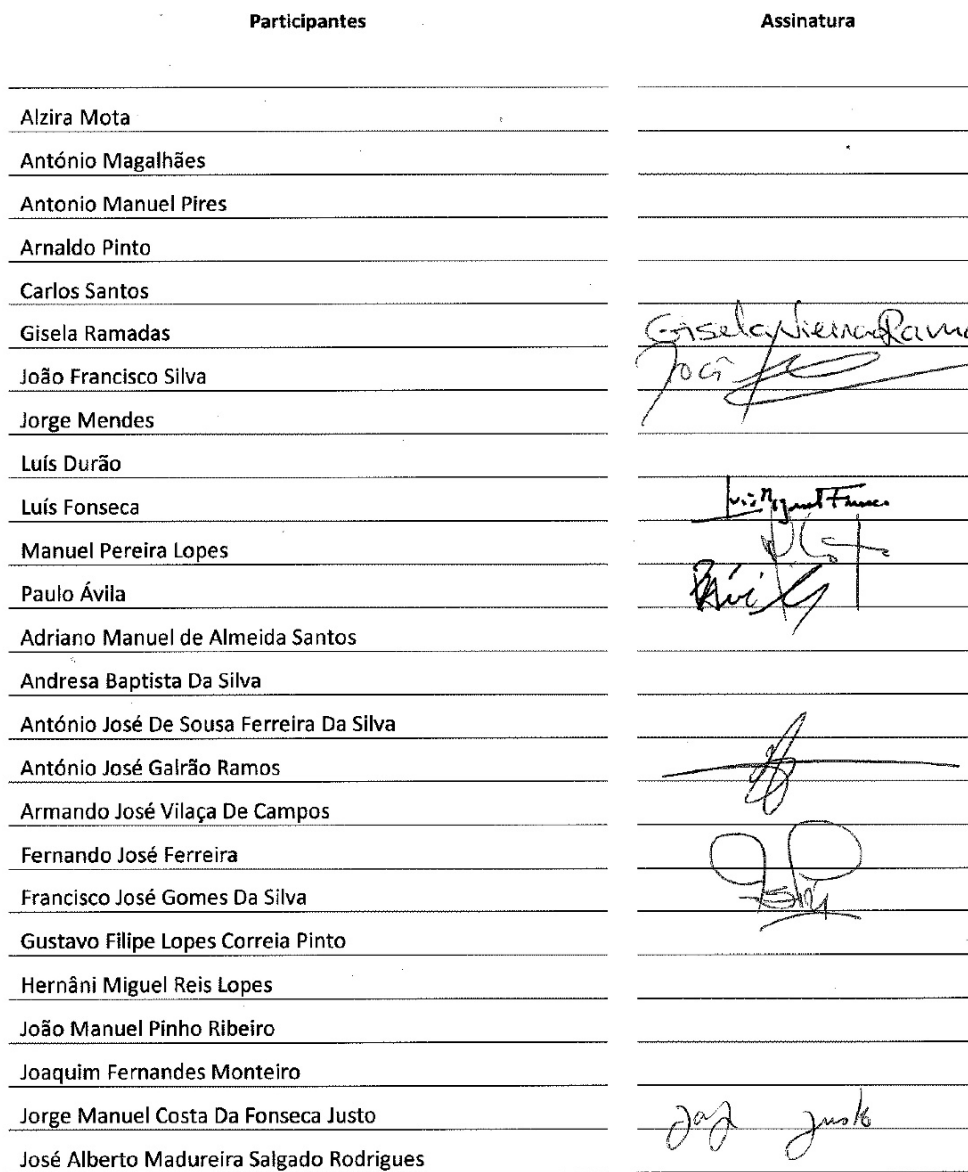 Participantes Assinatura
Alzira Mota
António Magalhães
Antonio Manuel Pires
Arnaldo Pinto
Carlos Santos
Gisela Ramadas Gisela Vieira Rama
João Francisco Silva João
Jorge Mendes
Luís Durão
Luís Fonseca Luís Miguel Fonseca
Manuel Pereira Lopes
Paulo Ávila
Adriano Manuel de Almeida Santos
Andresa Baptista Da Silva
António José De Sousa Ferreira Da Silva
António José Galrão Ramos
Armando José Vilaça De Campos
Fernando José Ferreira
Francisco José Gomes Da Silva
Gustavo Filipe Lopes Correia Pinto
Hernâni Miguel Reis Lopes
João Manuel Pinho Ribeiro
Joaquim Fernandes Monteiro
Jorge Manuel Costa Da Fonseca Justo Jorge Justo
José Alberto Madureira Salgado Rodrigues